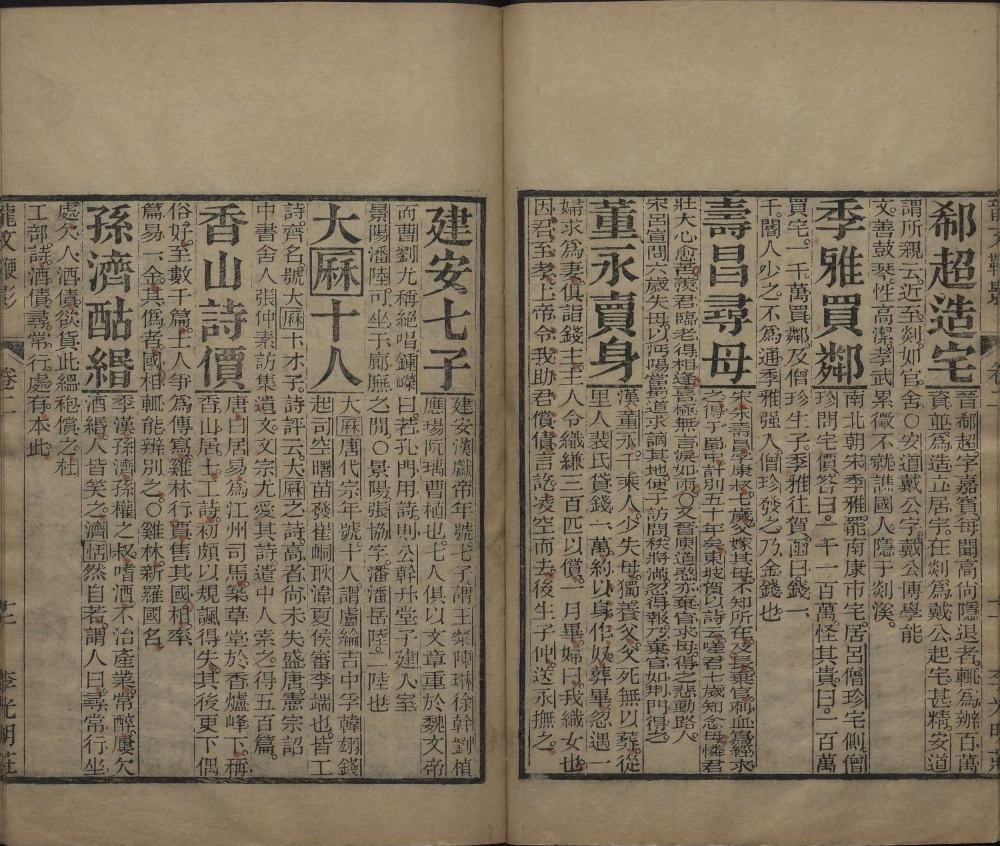 郗超造宅
晉郗超字嘉賓每聞高尚隱退者輒爲辦百萬
資並爲造立居宇在剡爲戴公起宅甚精安道
謂所親云近至剡如官舍〇安道戴公字戴公博學能
文善鼓琴性高潔孝武累徵不就譙國人隱于剡溪
季雅買鄰
南北朝宋季雅罷南康市宅居呂僧珍宅側僧
珍問宅價答曰一千一百萬怪其貴曰一百萬
買宅一千萬買鄰及僧珍生子季雅往賀函曰錢一
千閽人少之不爲通季雅强入僧珍發之乃金錢也
壽昌尋母
宋朱壽昌字康叔七歲父嫁其母不知所在及長棄官刺血寫經求
之得于蜀中計別五十年矣東坡賀以詩云嗟君七歲知念母憐君
壯大心愈苦羨君臨老得相逢喜極無言淚如雨〇又晉東道亦棄官求母得之悲動路人
宋呂宣問六歲失母以沔陽當蜀道求謫其地使于訪問秩將滿忽得報乃棄官如荆門得之
董永賣身
漢董永千乘人少失母獨養父父死無以葬從
里人裴氏貸錢一萬約以身作奴葬畢忽遇一
婦求爲妻俱詣錢主主人令織縑三百匹以償一月畢婦曰我織女也
因君至孝上帝令我助君償債言訖凌空而去後生子仲送永撫之
建安七子
建安漢獻帝年號七子謂王粲陳琳徐幹劉楨
應瑒阮瑀曹植也七人俱以文章重於魏文帝
而曹劉尤稱絕唱鍾嶸曰若孔門用詩則公幹升堂子建入室
景陽潘陸可坐于廊廡之間〇景陽張協字潘潘岳陸二陸也
大厤十人
大厤唐代宗年號十人謂盧綸吉中孚韓翃錢
起司空曙苗發崔峒耿湋夏侯審李端也皆工
詩齊名號大厤十才子詩評云大厤之詩高者尚未失盛唐憲宗詔
中書舍人張仲素訪集遺文文宗尤愛其詩遣中人索之得五百篇
香山詩價
唐白居易爲江州司馬築草堂於香爐峰下稱
香山居士工詩初頗以規諷得失其後更下偶
俗好至數千篇士人爭爲傳寫雞林行賈售其國相率
篇易一金其僞者國相輒能辨別之〇雞林新羅國名
孫濟酤緡
季漢孫濟孫權之叔嗜酒不治產業常醉屢欠
酒緡人皆笑之濟恬然自若謂人曰尋常行坐
處欠人酒債欲貨此縕袍償之杜
工部詩酒債尋常行處有本此
龍文鞭影
卷二
十二
李光明莊